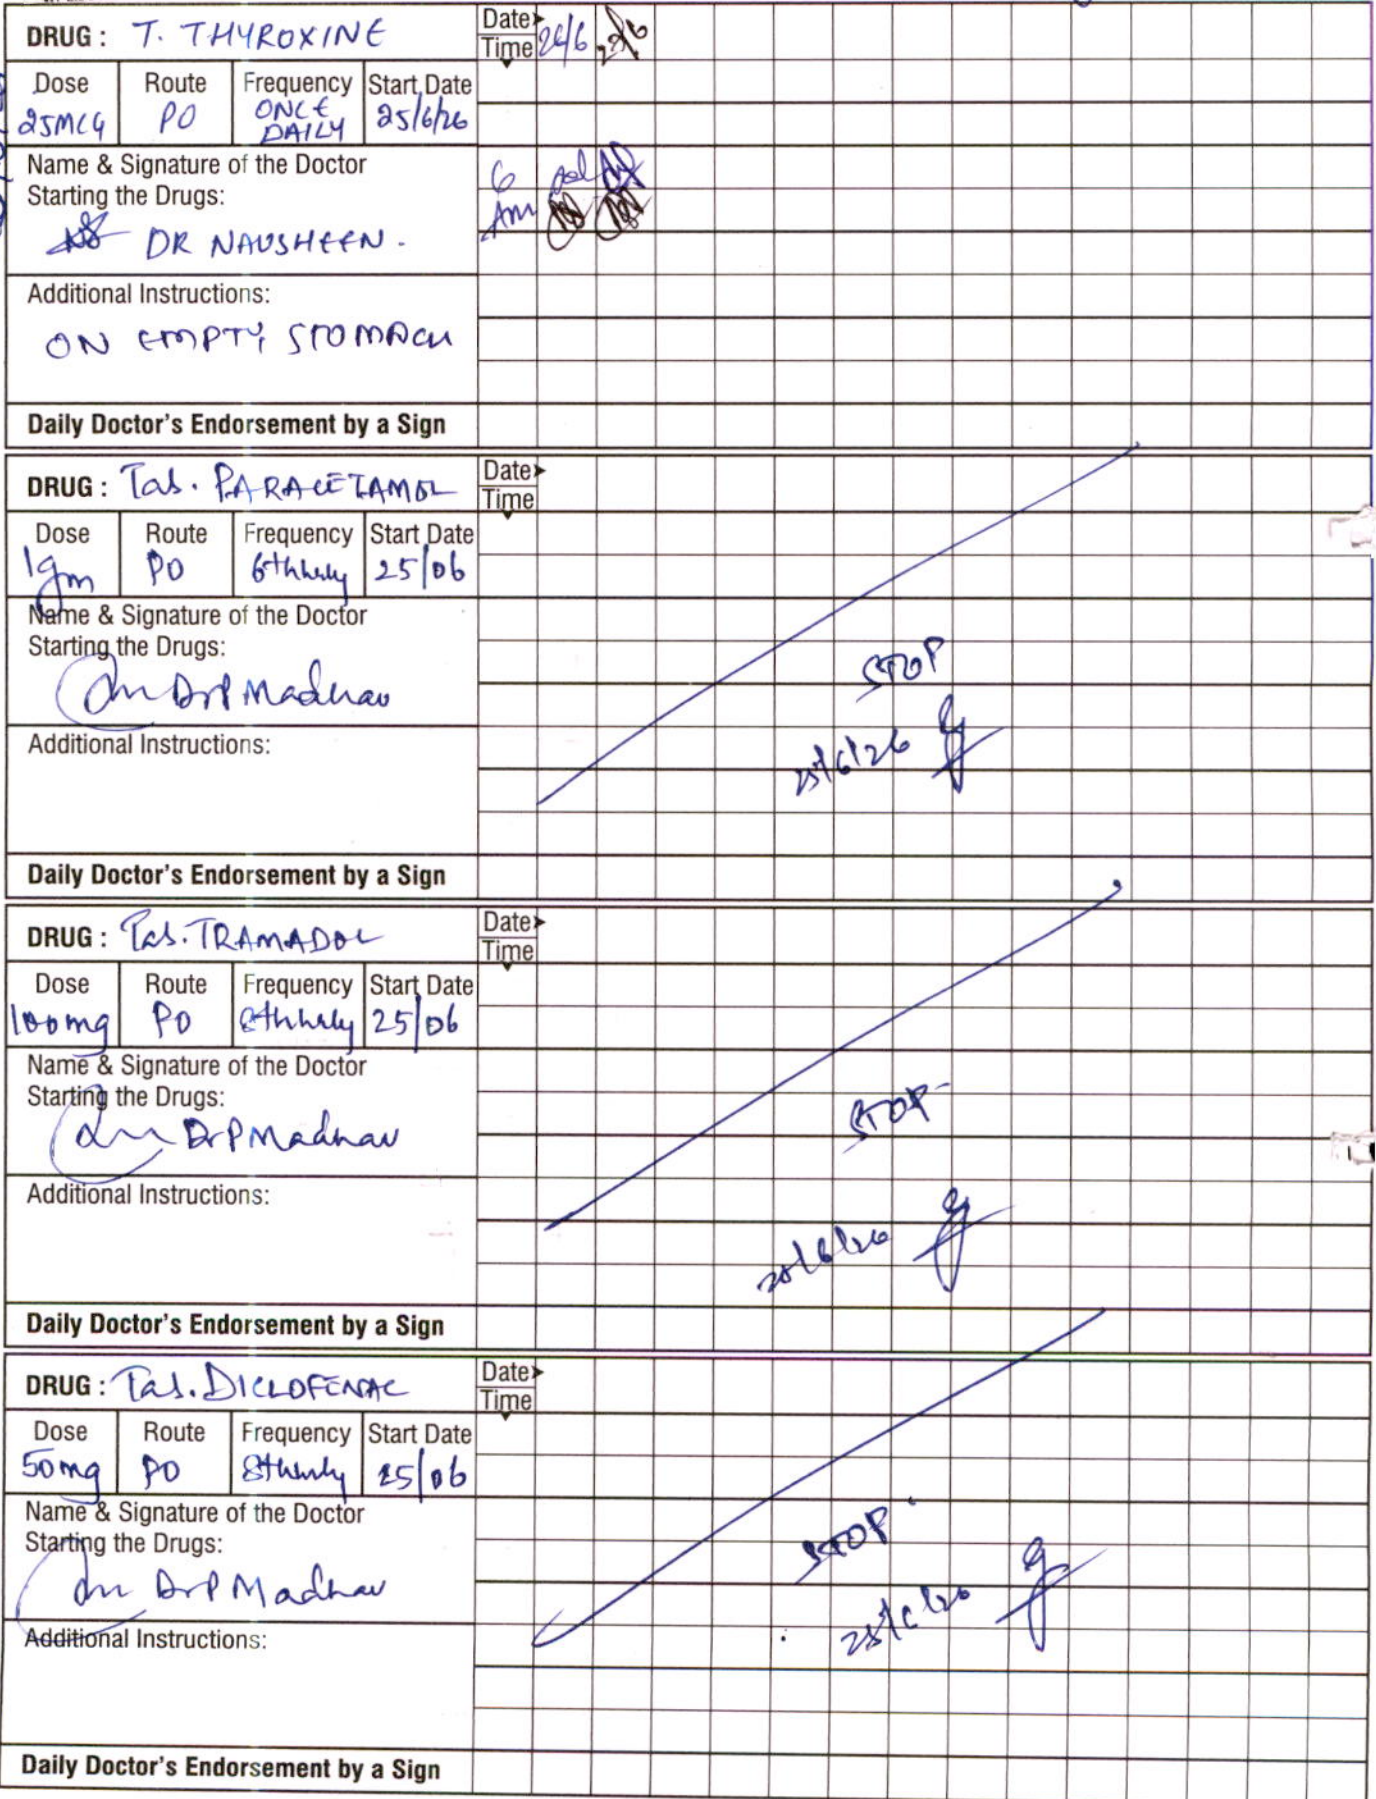 DRUG : T. THYROXINE
Date
Time 26/6
Dose Route Frequency Start Date
25MCG PO ONCE DAILY 25/6/26
Name & Signature of the Doctor
Starting the Drugs:
6
Am
DR NAUSHEEN.
Additional Instructions:
ON EMPTY STOMACH
Daily Doctor's Endorsement by a Sign
DRUG : Tab. PARACETAMOL
Date
Time
Dose Route Frequency Start Date
1gm PO 6thhrly 25/06
Name & Signature of the Doctor
Starting the Drugs:
Dr P Madhav
STOP
25/6/26
Additional Instructions:
Daily Doctor's Endorsement by a Sign
DRUG : Tab. TRAMADOL
Date
Time
Dose Route Frequency Start Date
100mg PO 8thhrly 25/06
Name & Signature of the Doctor
Starting the Drugs:
Dr P Madhav
STOP
Additional Instructions:
25/6/26
Daily Doctor's Endorsement by a Sign
DRUG : Tab. DICLOFENAC
Date
Time
Dose Route Frequency Start Date
50mg PO 8thhrly 25/06
Name & Signature of the Doctor
Starting the Drugs:
Dr P Madhav
STOP
25/6/26
Additional Instructions:
Daily Doctor's Endorsement by a Sign